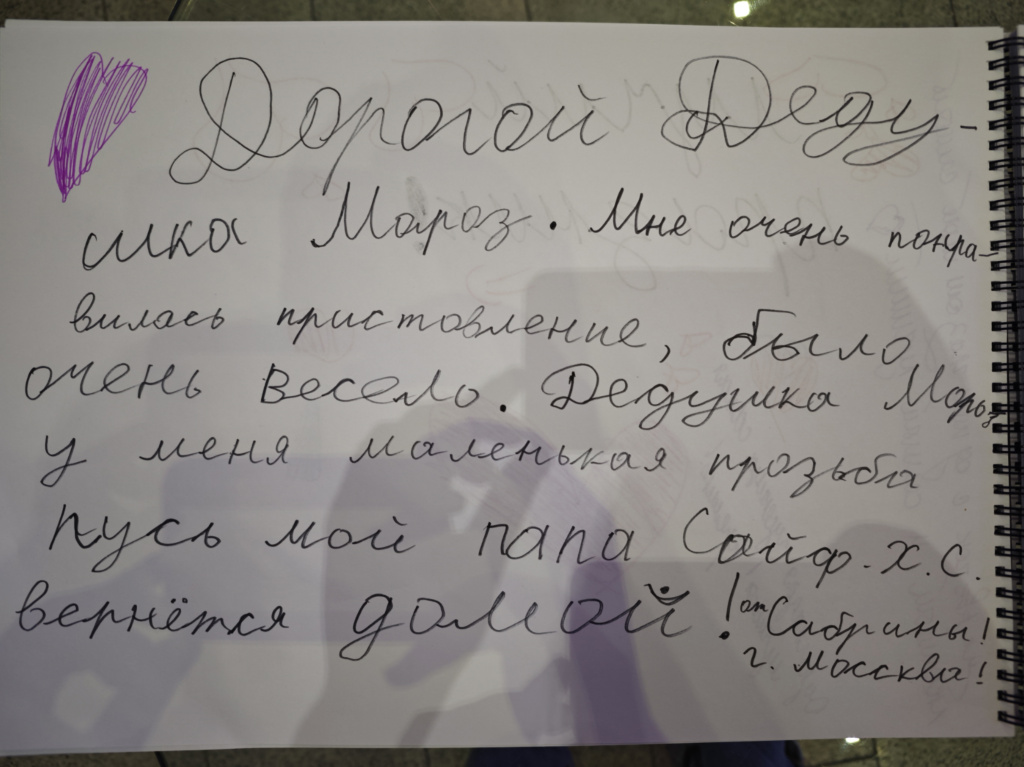 Дорогой Деду-
шка Мороз. Мне очень понра-
вилась приставление, было
очень весело. Дедушка Мороз
у меня маленькая прозьба
пусь мой папа Сайф. Х. С.
вернётся домой! от Сабрины!
г. Мосsква!